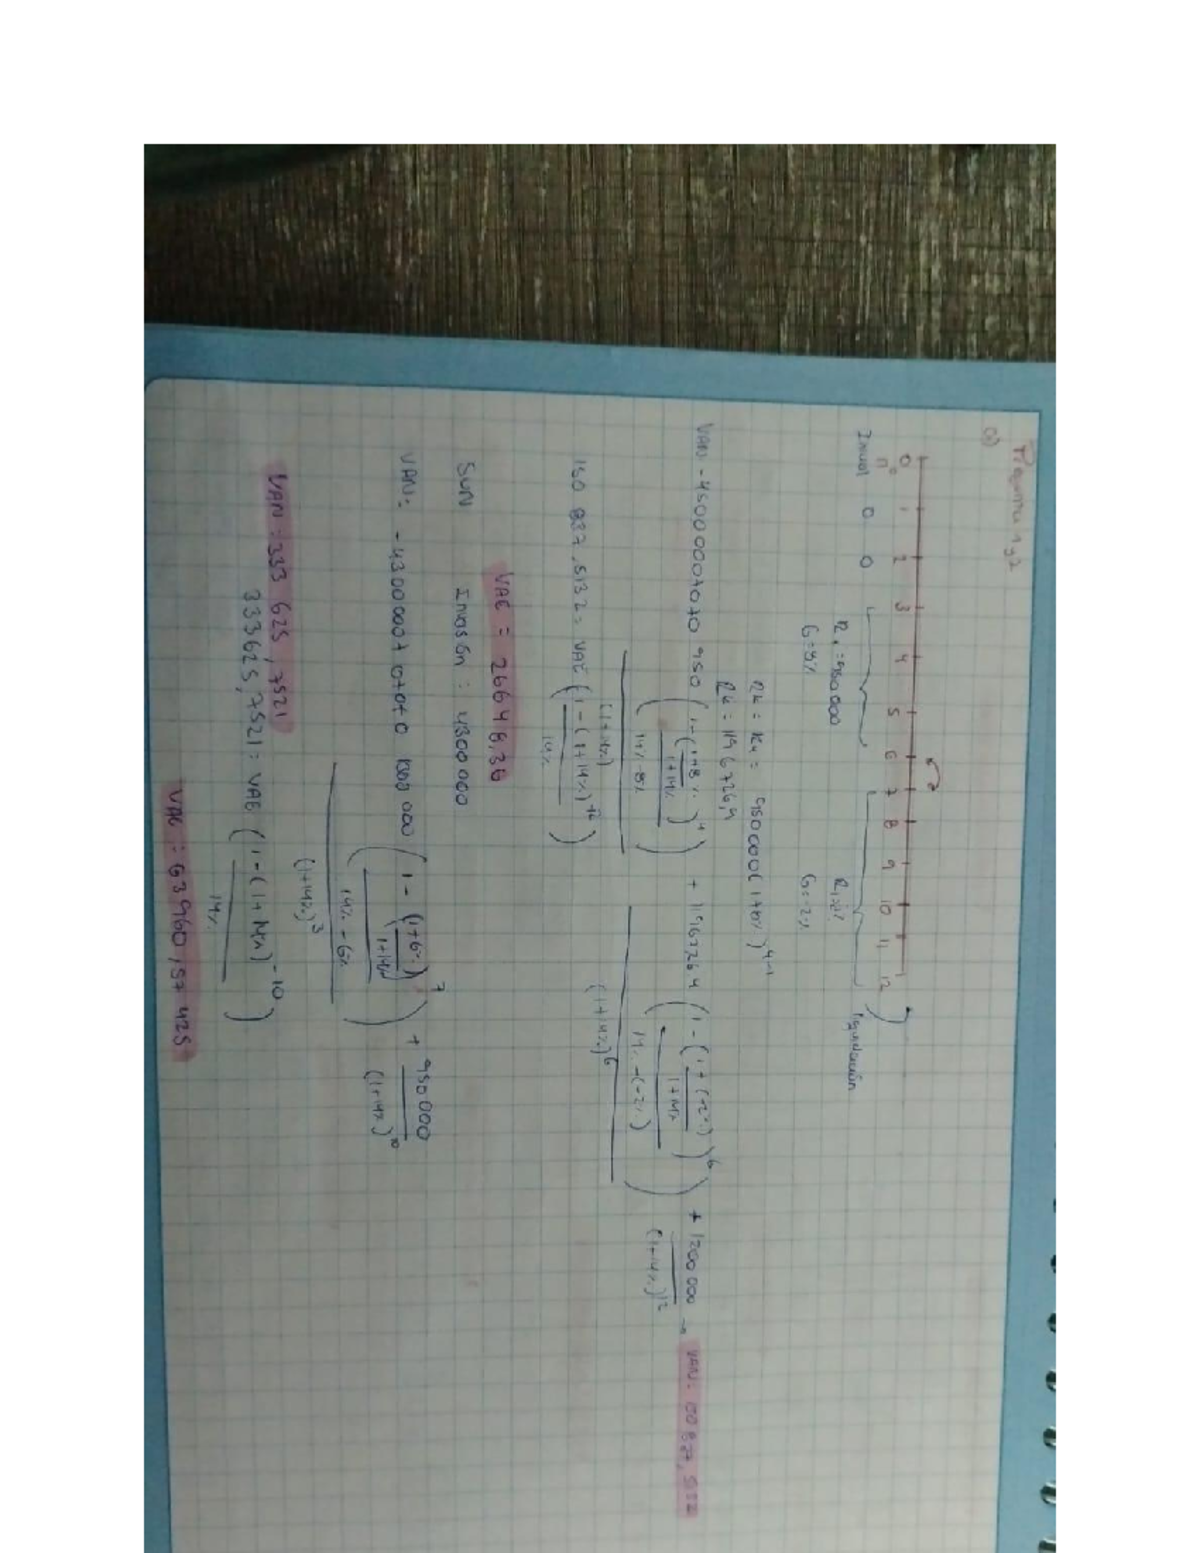 Pregunta 2
a)
0 1 2 3 4 5 6 7 8 9 10 11 12
Inicial 0 0
R1=950 000
G=8%
G=-2%
liquidación
Rk = R4 = 950000(1+8%)^4-1
R4 = 1196726,4
VAN = -4500000+0+0 950 (1-(1+8%/1+14%)^4 / 14%-8%) / (1+14%)^2 + 1196726 4 (1-(1+(-2%)/1+14%)^6 / 14%-(-2%)) / (1+14%)^6 + 1200 000 / (1+14%)^12 →
150 837,5132 = VAE (1-(1+14%)^-12 / 14%)
VAE = 26648,36
SUN Invasión : 4300 000
VAN: -4300 000+0+0+0 1000 000 (1-(1+6%/1+14%)^7 / 14%-6%) / (1+14%)^3 + 950 000 / (1+14%)^10
VAN : 333 625,7521
333625,7521 = VAE (1-(1+14%)^-10 / 14%)
VAE : 63960,57 425